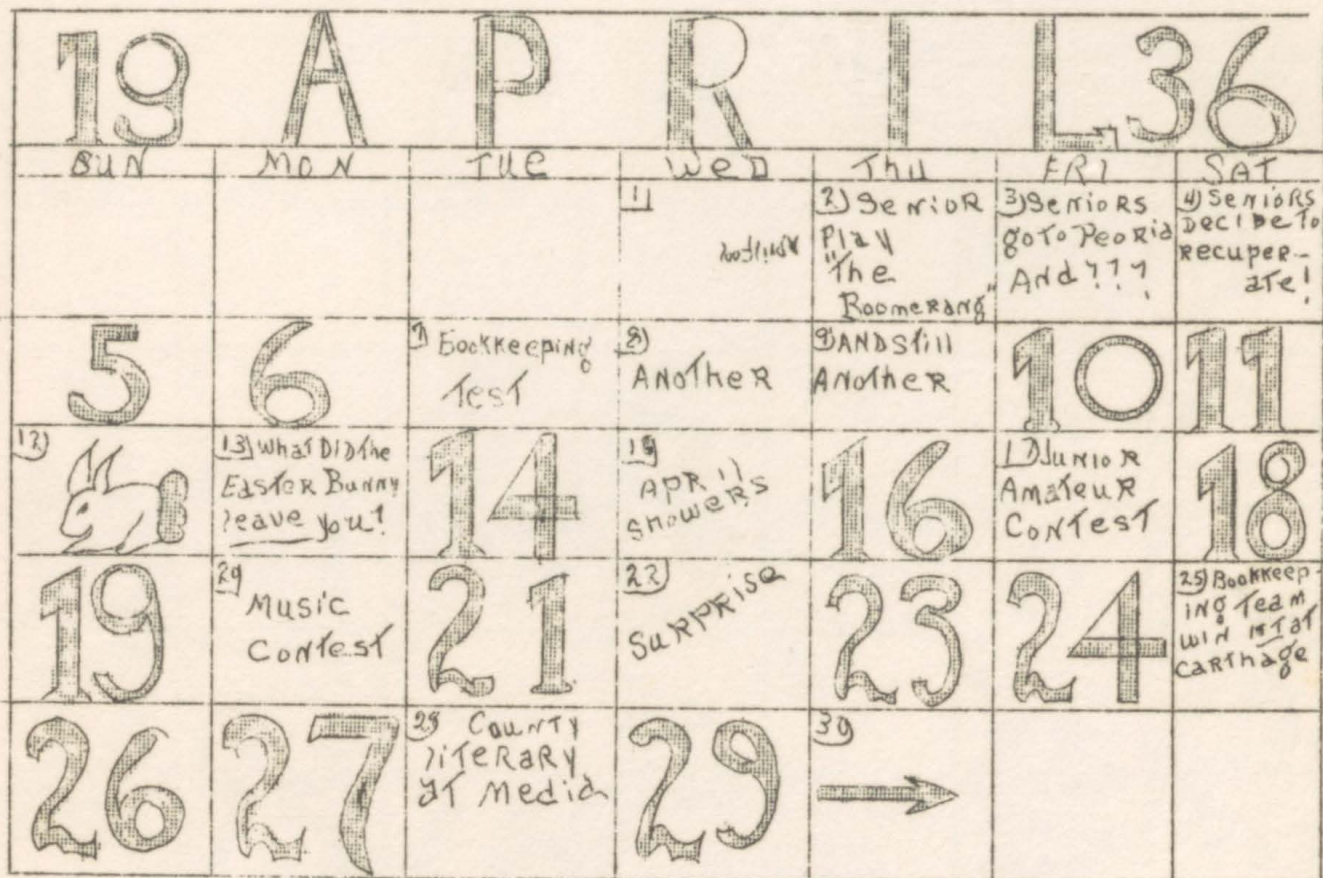 19 APRIL 36
SUN MON TUE WED THU FRI SAT
1)
April fool
2) Senior
Play
"The
Boomerang"
3) Seniors
go to Peoria
And ???
4) Seniors
Decide to
recuper-
ate!
5
6
7) Bookkeeping
Test
8)
Another
9) And still
Another
10
11
12)
13) What Did the
Easter Bunny
leave you?
14
15
April
showers
16
17) Junior
Amateur
Contest
18
19
20
Music
Contest
21
22)
Surprise
23
24
25) Bookkeep-
ing Team
win 1st at
Carthage
26
27
28 County
literary
at Media
29
30